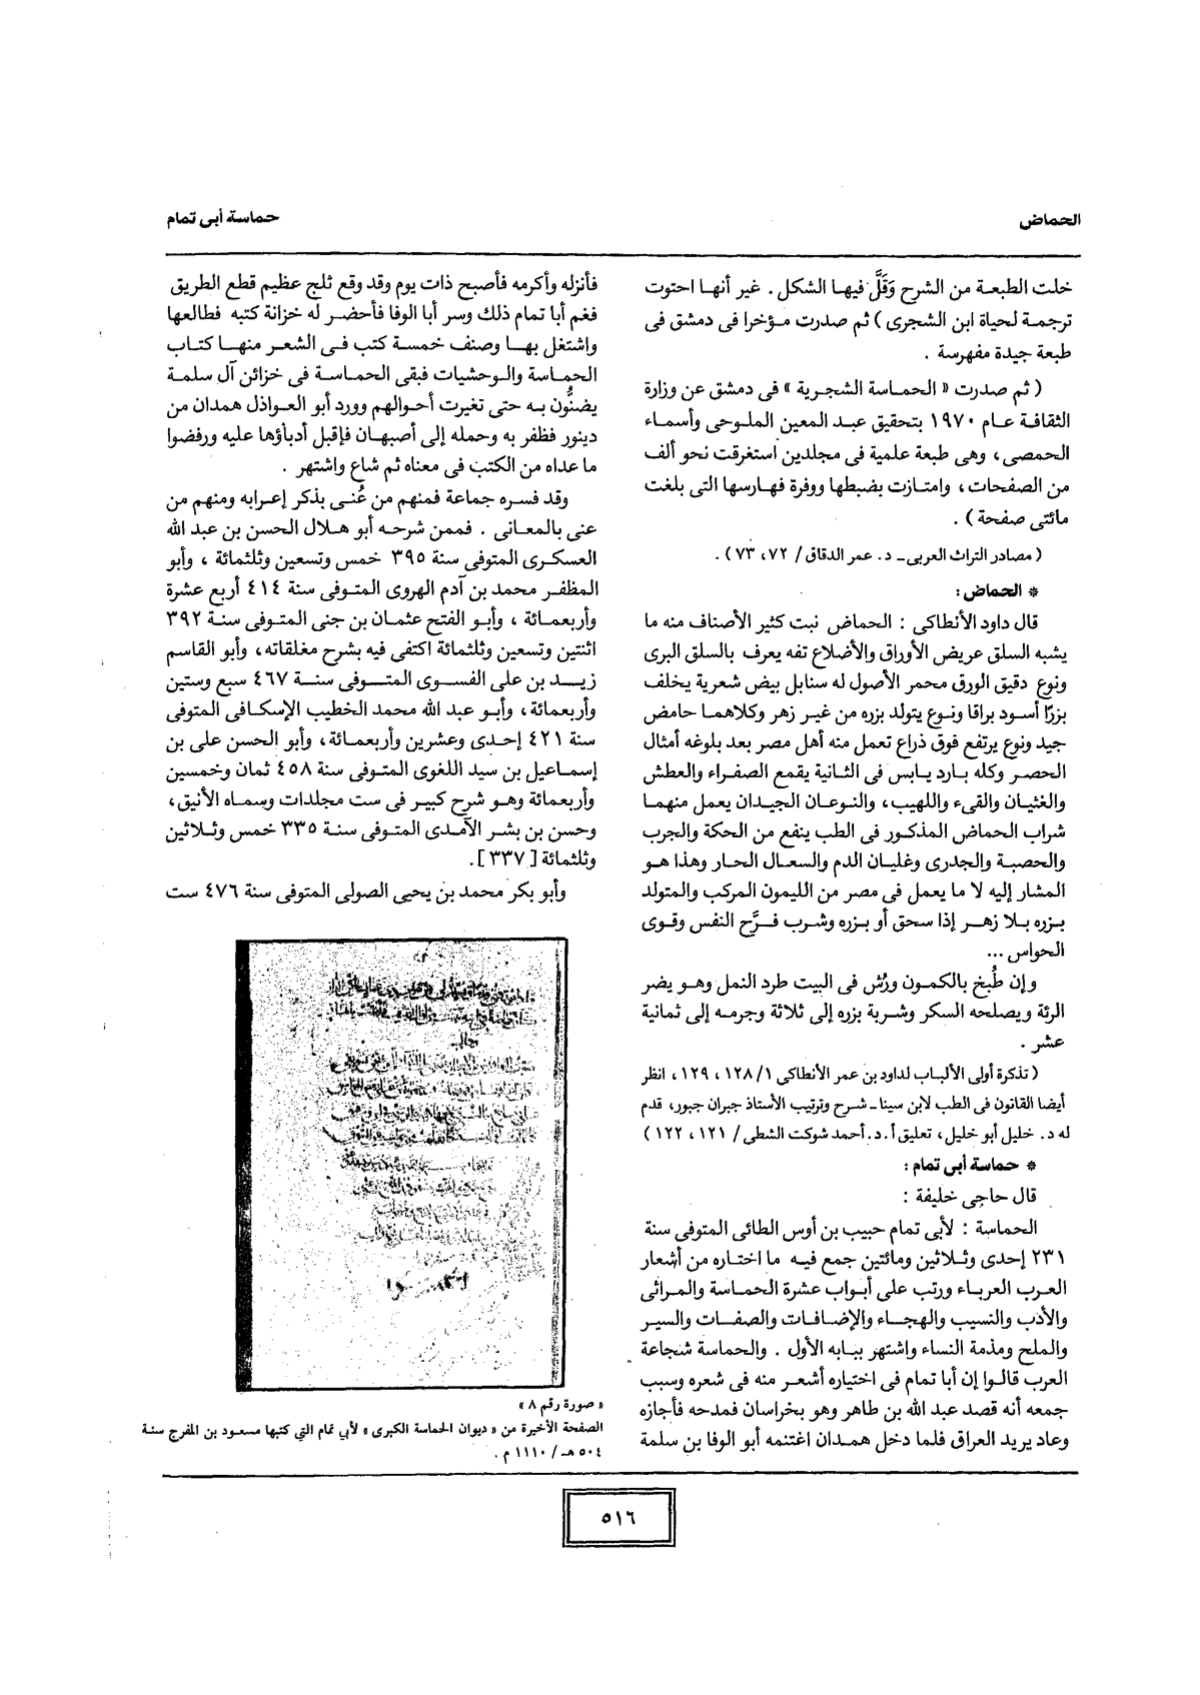 الحماض
حماسة أبى تمام
خلت الطبعة من الشرح وَقَلَّ فيها الشكل . غير أنها احتوت
ترجمة لحياة ابن الشجرى ) ثم صدرت مؤخرا فى دمشق فى
طبعة جيدة مفهرسة .
( ثم صدرت « الحماسة الشجرية » فى دمشق عن وزارة
الثقافة عام ١٩٧٠ بتحقيق عبد المعين الملوحى وأسماء
الحمصى ، وهى طبعة علمية فى مجلدين استغرقت نحو ألف
من الصفحات ، وامتازت بضبطها ووفرة فهارسها التى بلغت
مائتى صفحة ) .
( مصادر التراث العربى ــ د. عمر الدقاق / ٧٢ ، ٧٣ ) .
* الحماض :
قال داود الأنطاكى : الحماض نبت كثير الأصناف منه ما
يشبه السلق عريض الأوراق والأضلاع تفه يعرف بالسلق البرى
ونوع دقيق الورق محمر الأصول له سنابل بيض شعرية يخلف
بزرًا أسود براقا ونوع يتولد بزره من غير زهر وكلاهما حامض
جيد ونوع يرتفع فوق ذراع تعمل منه أهل مصر بعد بلوغه أمثال
الحصر وكله بارد يابس فى الثانية يقمع الصفراء والعطش
والغثيان والقىء واللهيب ، والنوعان الجيدان يعمل منهما
شراب الحماض المذكور فى الطب ينفع من الحكة والجرب
والحصبة والجدرى وغليان الدم والسعال الحار وهذا هو
المشار إليه لا ما يعمل فى مصر من الليمون المركب والمتولد
بزره بلا زهر إذا سحق أو بزره وشرب فرَّح النفس وقوى
الحواس ...
وإن طُبخ بالكمون ورُش فى البيت طرد النمل وهو يضر
الرئة ويصلحه السكر وشربة بزره إلى ثلاثة وجرمه إلى ثمانية
عشر .
( تذكرة أولى الألباب لداود بن عمر الأنطاكى ١ / ١٢٨ ، ١٢٩ ، انظر
أيضا القانون فى الطب لابن سينا ــ شرح وترتيب الأستاذ جبران جبور، قدم
له د. خليل أبو خليل ، تعليق أ. د. أحمد شوكت الشطى / ١٢١ ، ١٢٢ )
* حماسة أبى تمام :
قال حاجى خليفة :
الحماسة : لأبى تمام حبيب بن أوس الطائى المتوفى سنة
٢٣١ إحدى وثلاثين ومائتين جمع فيه ما اختاره من أشعار
العرب العرباء ورتب على أبواب عشرة الحماسة والمراثى
والأدب والنسيب والهجاء والإضافات والصفات والسير
والملح ومذمة النساء واشتهر ببابه الأول . والحماسة شجاعة
العرب قالوا إن أبا تمام فى اختياره أشعر منه فى شعره وسبب
جمعه أنه قصد عبد الله بن طاهر وهو بخراسان فمدحه فأجازه
وعاد يريد العراق فلما دخل همدان اغتنمه أبو الوفا بن سلمة
فأنزله وأكرمه فأصبح ذات يوم وقد وقع ثلج عظيم قطع الطريق
فغم أبا تمام ذلك وسر أبا الوفا فأحضر له خزانة كتبه فطالعها
واشتغل بها وصنف خمسة كتب فى الشعر منها كتاب
الحماسة والوحشيات فبقى الحماسة فى خزائن آل سلمة
يضنُّون به حتى تغيرت أحوالهم وورد أبو العواذل همدان من
دينور فظفر به وحمله إلى أصبهان فإقبل أدباؤها عليه ورفضوا
ما عداه من الكتب فى معناه ثم شاع واشتهر .
وقد فسره جماعة فمنهم من عُنى بذكر إعرابه ومنهم من
عنى بالمعانى . فممن شرحه أبو هلال الحسن بن عبد الله
العسكرى المتوفى سنة ٣٩٥ خمس وتسعين وثلثمائة ، وأبو
المظفر محمد بن آدم الهروى المتوفى سنة ٤١٤ أربع عشرة
وأربعمائة ، وأبو الفتح عثمان بن جنى المتوفى سنة ٣٩٢
اثنتين وتسعين وثلثمائة اكتفى فيه بشرح مغلقاته ، وأبو القاسم
زيد بن على الفسوى المتوفى سنة ٤٦٧ سبع وستين
وأربعمائة ، وأبو عبد الله محمد الخطيب الإسكافى المتوفى
سنة ٤٢١ إحدى وعشرين وأربعمائة ، وأبو الحسن على بن
إسماعيل بن سيد اللغوى المتوفى سنة ٤٥٨ ثمان وخمسين
وأربعمائة وهو شرح كبير فى ست مجلدات وسماه الأنيق ،
وحسن بن بشر الآمدى المتوفى سنة ٣٣٥ خمس وثلاثين
وثلثمائة [ ٣٣٧ ] .
وأبو بكر محمد بن يحيى الصولى المتوفى سنة ٤٧٦ ست
« صورة رقم ٨ »
الصفحة الأخيرة من « ديوان الحماسة الكبرى » لأبي تمام التي كتبها مسعود بن المفرج سنة
٥٠٤ هـ / ١١١٠ م .
٥١٦